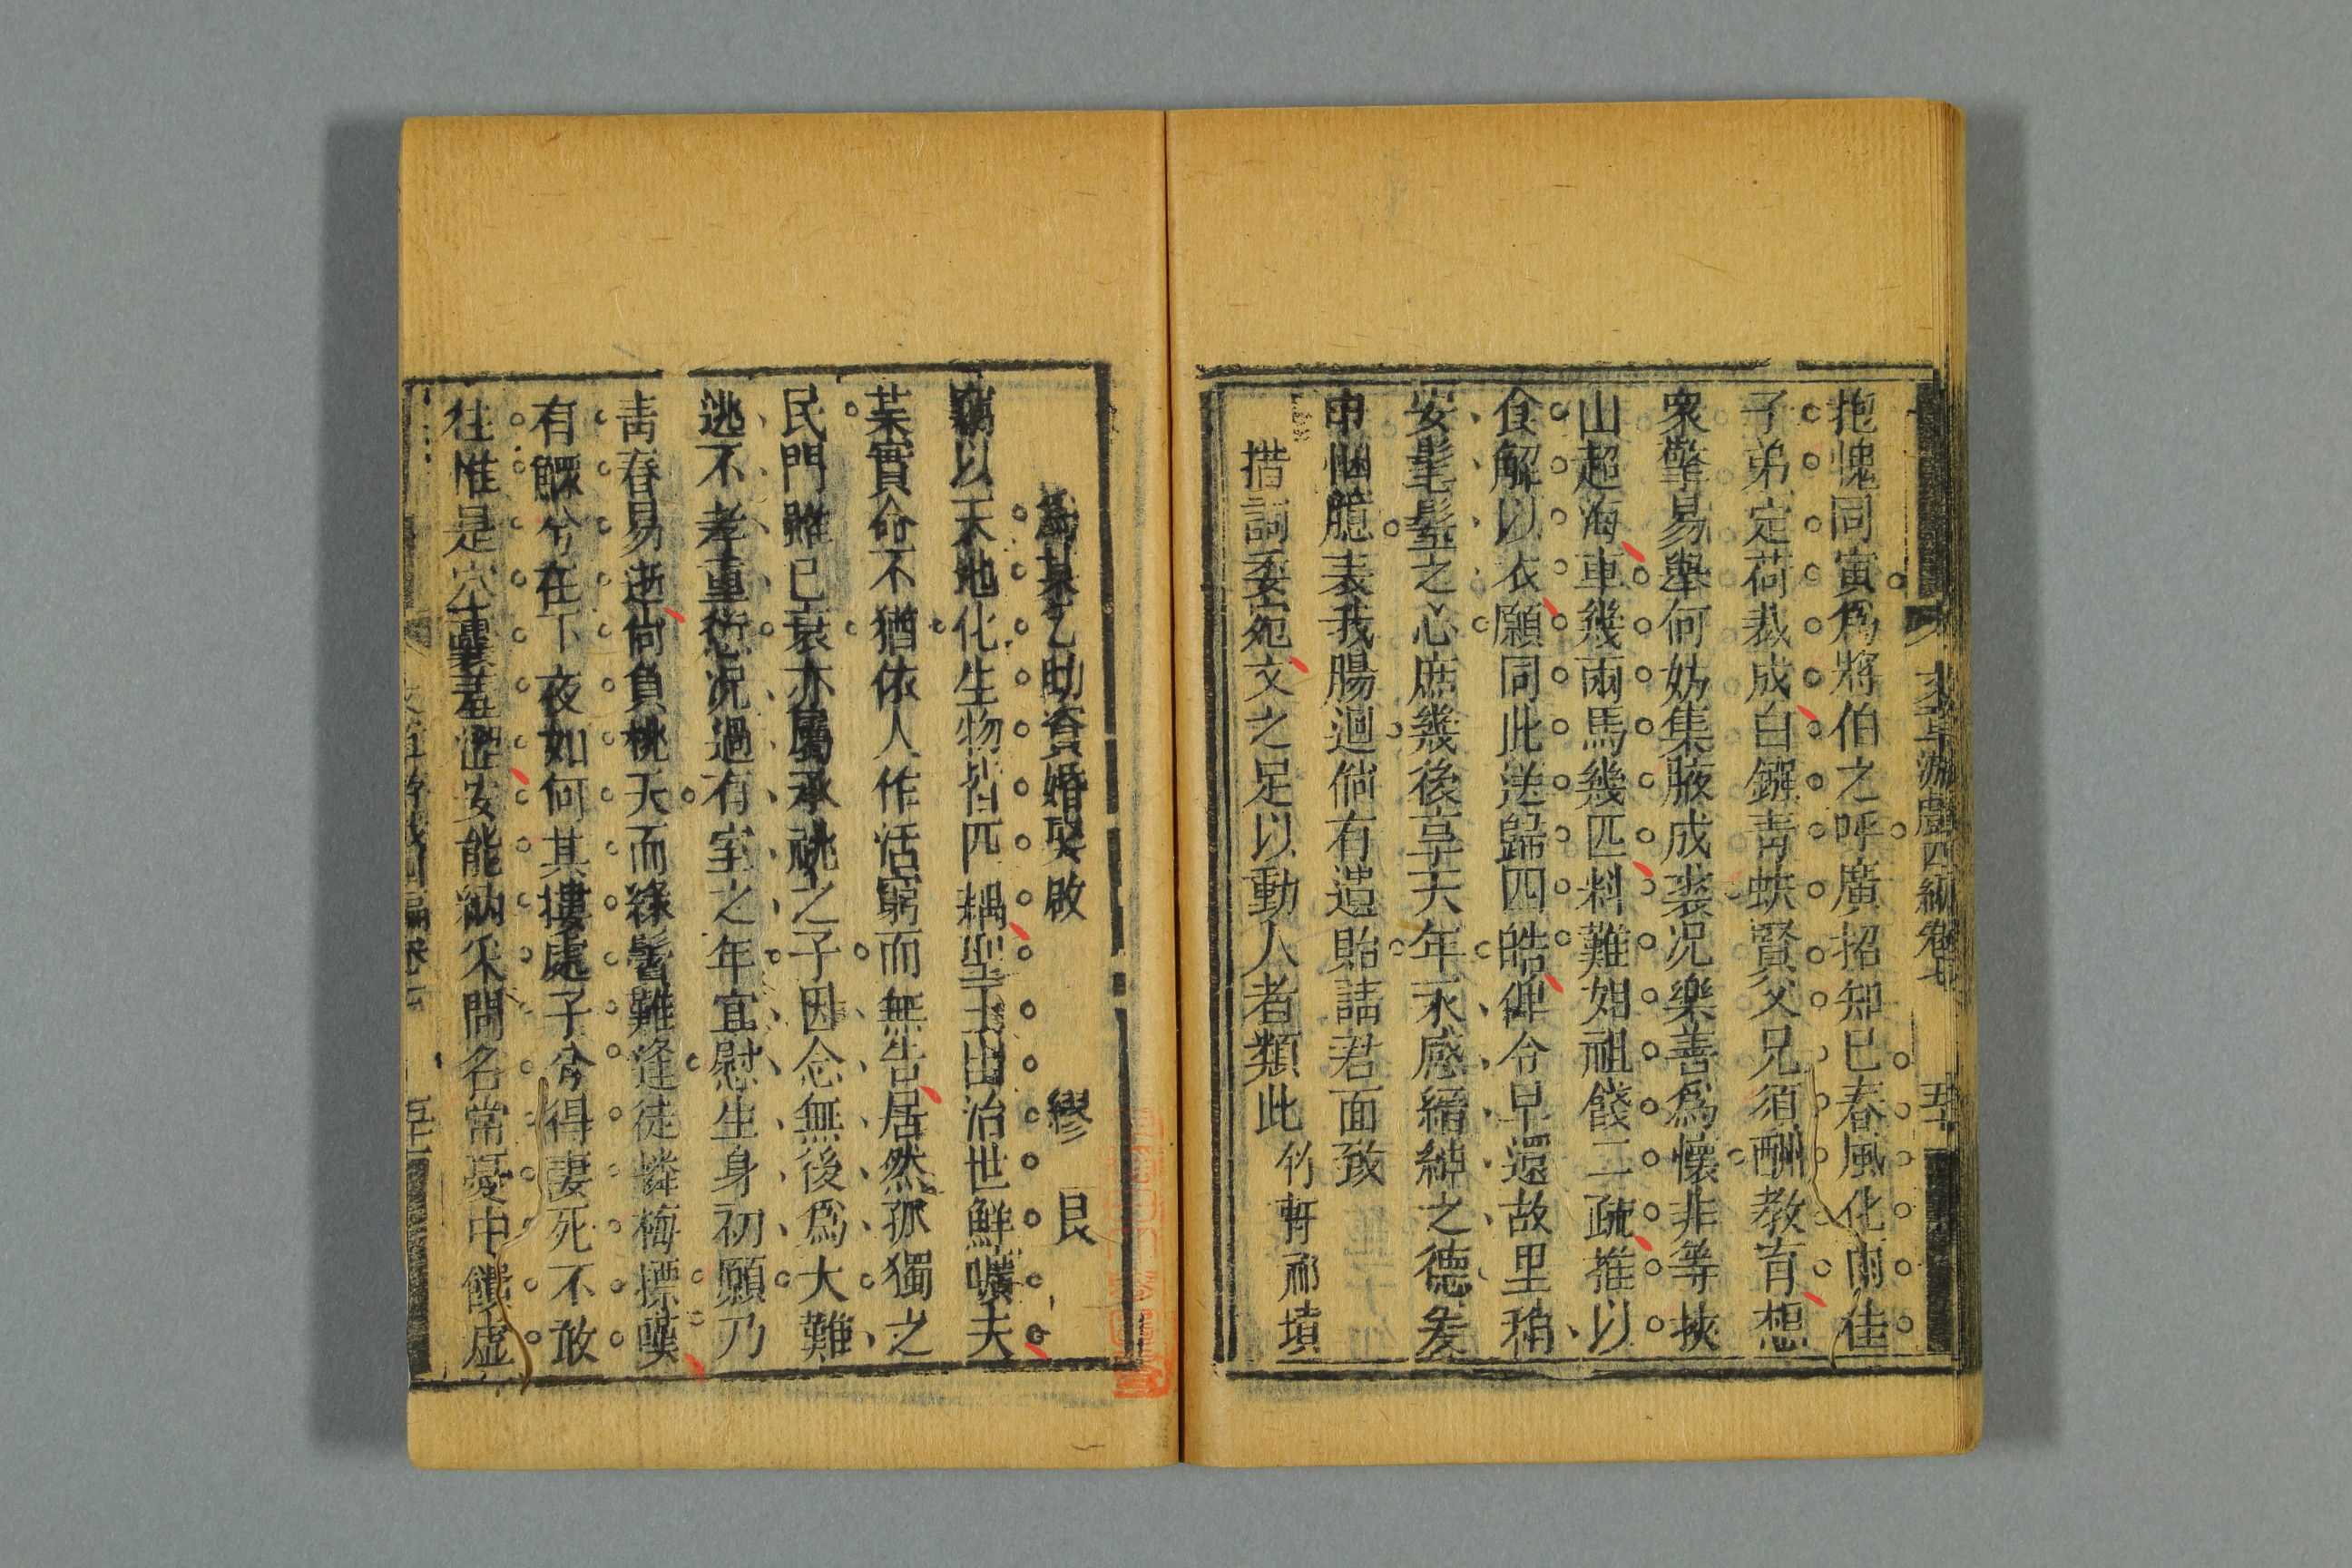 文章游戲四編卷七
五十
抱愧同寅爲將伯之呼廣招知已春風化雨佳
子弟定荷裁成白鏹靑蚨賢父兄須酬教育想
衆擎易舉何妨集腋成裘况樂善爲懷非等挾
山超海車幾兩馬幾匹料難如祖餞二疏推以
食解以衣願同此送歸四皓俾令早還故里稍
安髦鬌之心庶幾後享天年永感縉紳之德爰
申悃臆表我腸迴倘有遣貽請君面致
措詞委宛文之足以動人者類此
竹軒祁墳
爲某乙助資婚娶啟
繆艮
竊以天地化生物皆匹耦聖王出治世鮮曠夫
某實命不猶依人作活窮而無告居然孤獨之
民門雖已衰亦屬承祧之子因念無後爲大難
逃不孝重愆况過有室之年宜慰生身初願乃
靑春易逝尚負桃夭而綠鬢難逢徒憐梅摽嘆
有鰥兮在下夜如何其摟處子兮得妻死不敢
往惟是穴囊羞澀安能納采問名常憂中饋虛
五十一